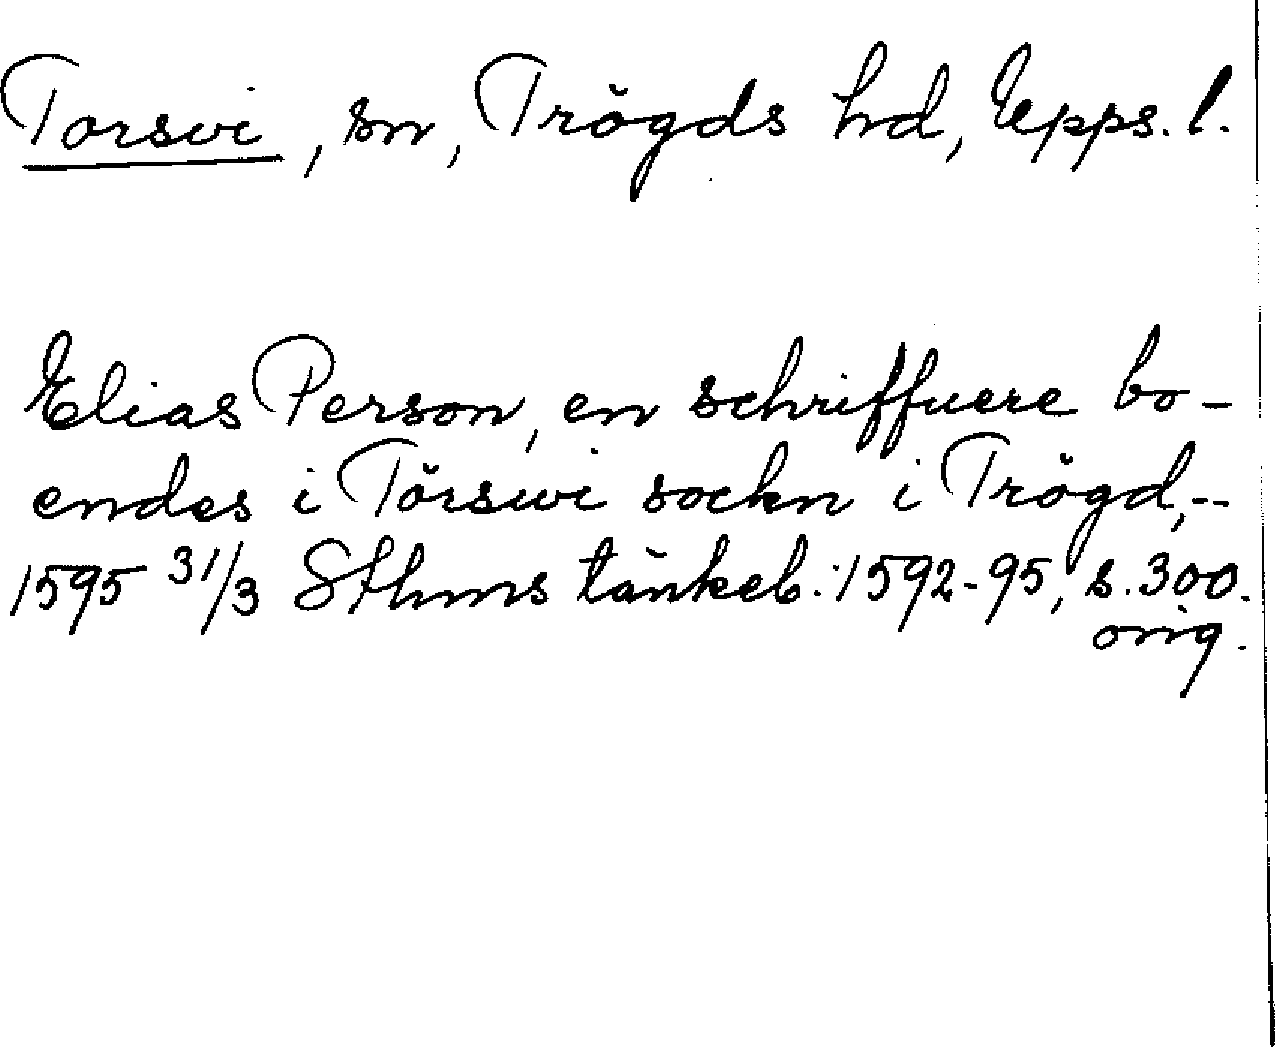 Torsvi, sn, Trögds hd, Upps. l.
Elias Person, en schriffuere bo-
endes i Törswi sockn i Trögd,--
1595 31/3 Sthms tänkeb. 1592-95, s. 300.
orig.